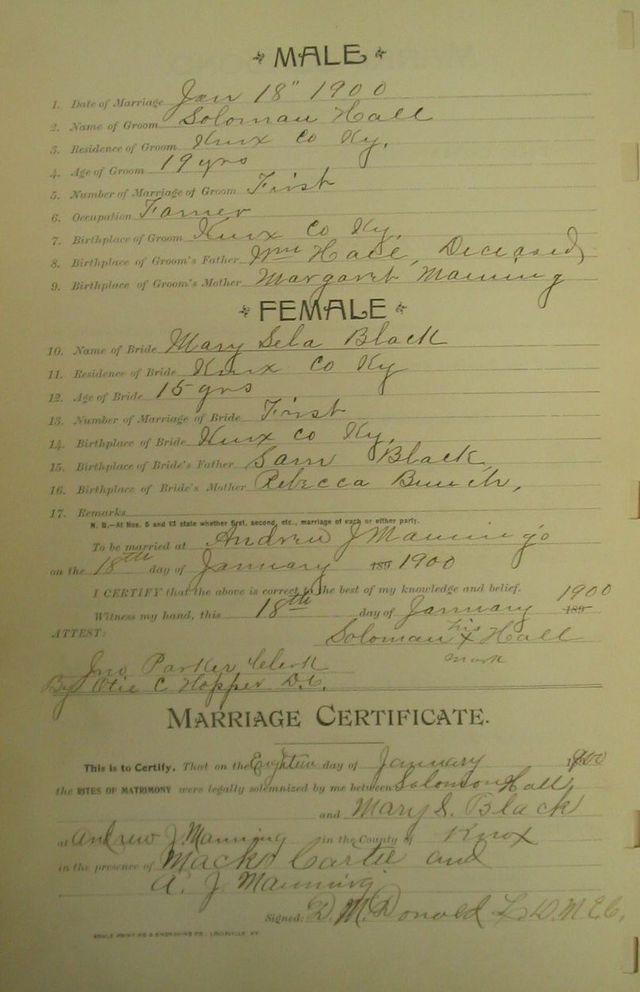 MALE
1. Date of Marriage Jan 18" 1900
2. Name of Groom Soloman Hall
3. Residence of Groom Knox Co Ky.
4. Age of Groom 19 yrs
5. Number of Marriage of Groom First
6. Occupation Farmer
7. Birthplace of Groom Knox Co Ky.
8. Birthplace of Groom's Father Wm Hall, Deceased
9. Birthplace of Groom's Mother Margaret Manning
FEMALE
10. Name of Bride Mary Sela Black
11. Residence of Bride Knox Co Ky
12. Age of Bride 15 yrs
13. Number of Marriage of Bride First
14. Birthplace of Bride Knox Co Ky.
15. Birthplace of Bride's Father Sam Black,
16. Birthplace of Bride's Mother Rebecca Bunch,
17. Remarks
N. B.—At Nos. 5 and 13 state whether first, second, etc., marriage of each or either party.
To be married at Andrew J Manning's
on the 18th day of January 189 1900
I CERTIFY that the above is correct to the best of my knowledge and belief.
Witness my hand, this 18th day of January 189 1900
ATTEST: Soloman his x mark Hall
Jno Parker Clerk
By Otie C. Hopper D.C.
MARRIAGE CERTIFICATE.
This is to Certify, That on the day of January 1900
the RITES OF MATRIMONY were legally solemnized by me between Solomon Hall
and Mary S. Black
at Andrew J. Manning in the County of Knox
in the presence of and
A. J. Manning.
Signed: D. M. Donold